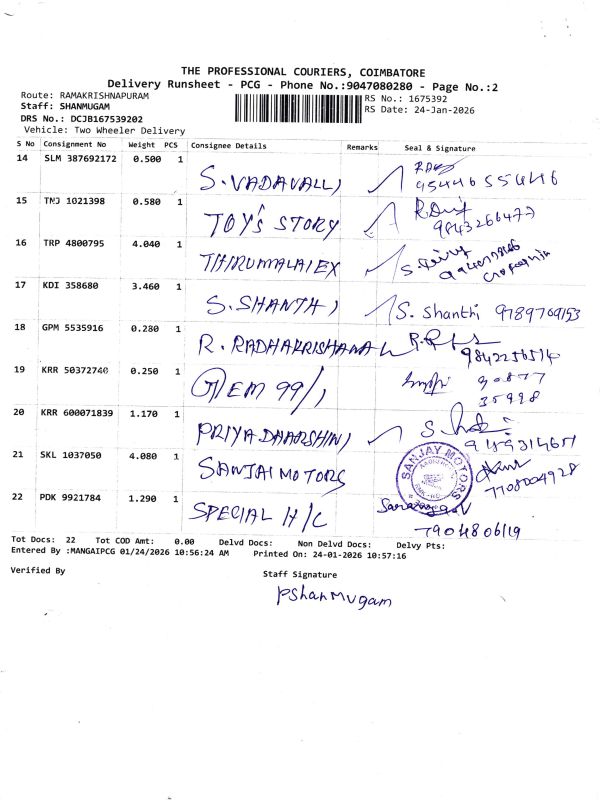 THE PROFESSIONAL COURIERS, COIMBATORE
Delivery Runsheet - PCG - Phone No.:9047080280 - Page No.:2
Route: RAMAKRISHNAPURAM
RS No.: 1675392
Staff: SHANMUGAM
RS Date: 24-Jan-2026
DRS No.: DCJB167539202
Vehicle: Two Wheeler Delivery
S No Consignment No Weight PCS Consignee Details Remarks Seal & Signature
14 SLM 387692172 0.500 1 S. VADAVALLI
95446 55446
15 TNJ 1021398 0.580 1 TOY's STORY
9843266477
16 TRP 4800795 4.040 1 THIRUMALAI EX
17 KDI 358680 3.460 1 S. SHANTHI S. Shanthi 9789709153
18 GPM 5535916 0.280 1 R. RADHAKRISHANAN
9842256514
19 KRR 50372740 0.250 1 G/EM 99/1
90877
35998
20 KRR 600071839 1.170 1 PRIYA DHARSHINI
21 SKL 1037050 4.080 1 SANJAI MOTORS SANJAY MOTORS
7708004928
22 PDK 9921784 1.290 1 SPECIAL H/C
7904806119
Tot Docs: 22 Tot COD Amt: 0.00 Delvd Docs: Non Delvd Docs: Delvy Pts:
Entered By :MANGAIPCG 01/24/2026 10:56:24 AM Printed On: 24-01-2026 10:57:16
Verified By
Staff Signature
PShanmugam